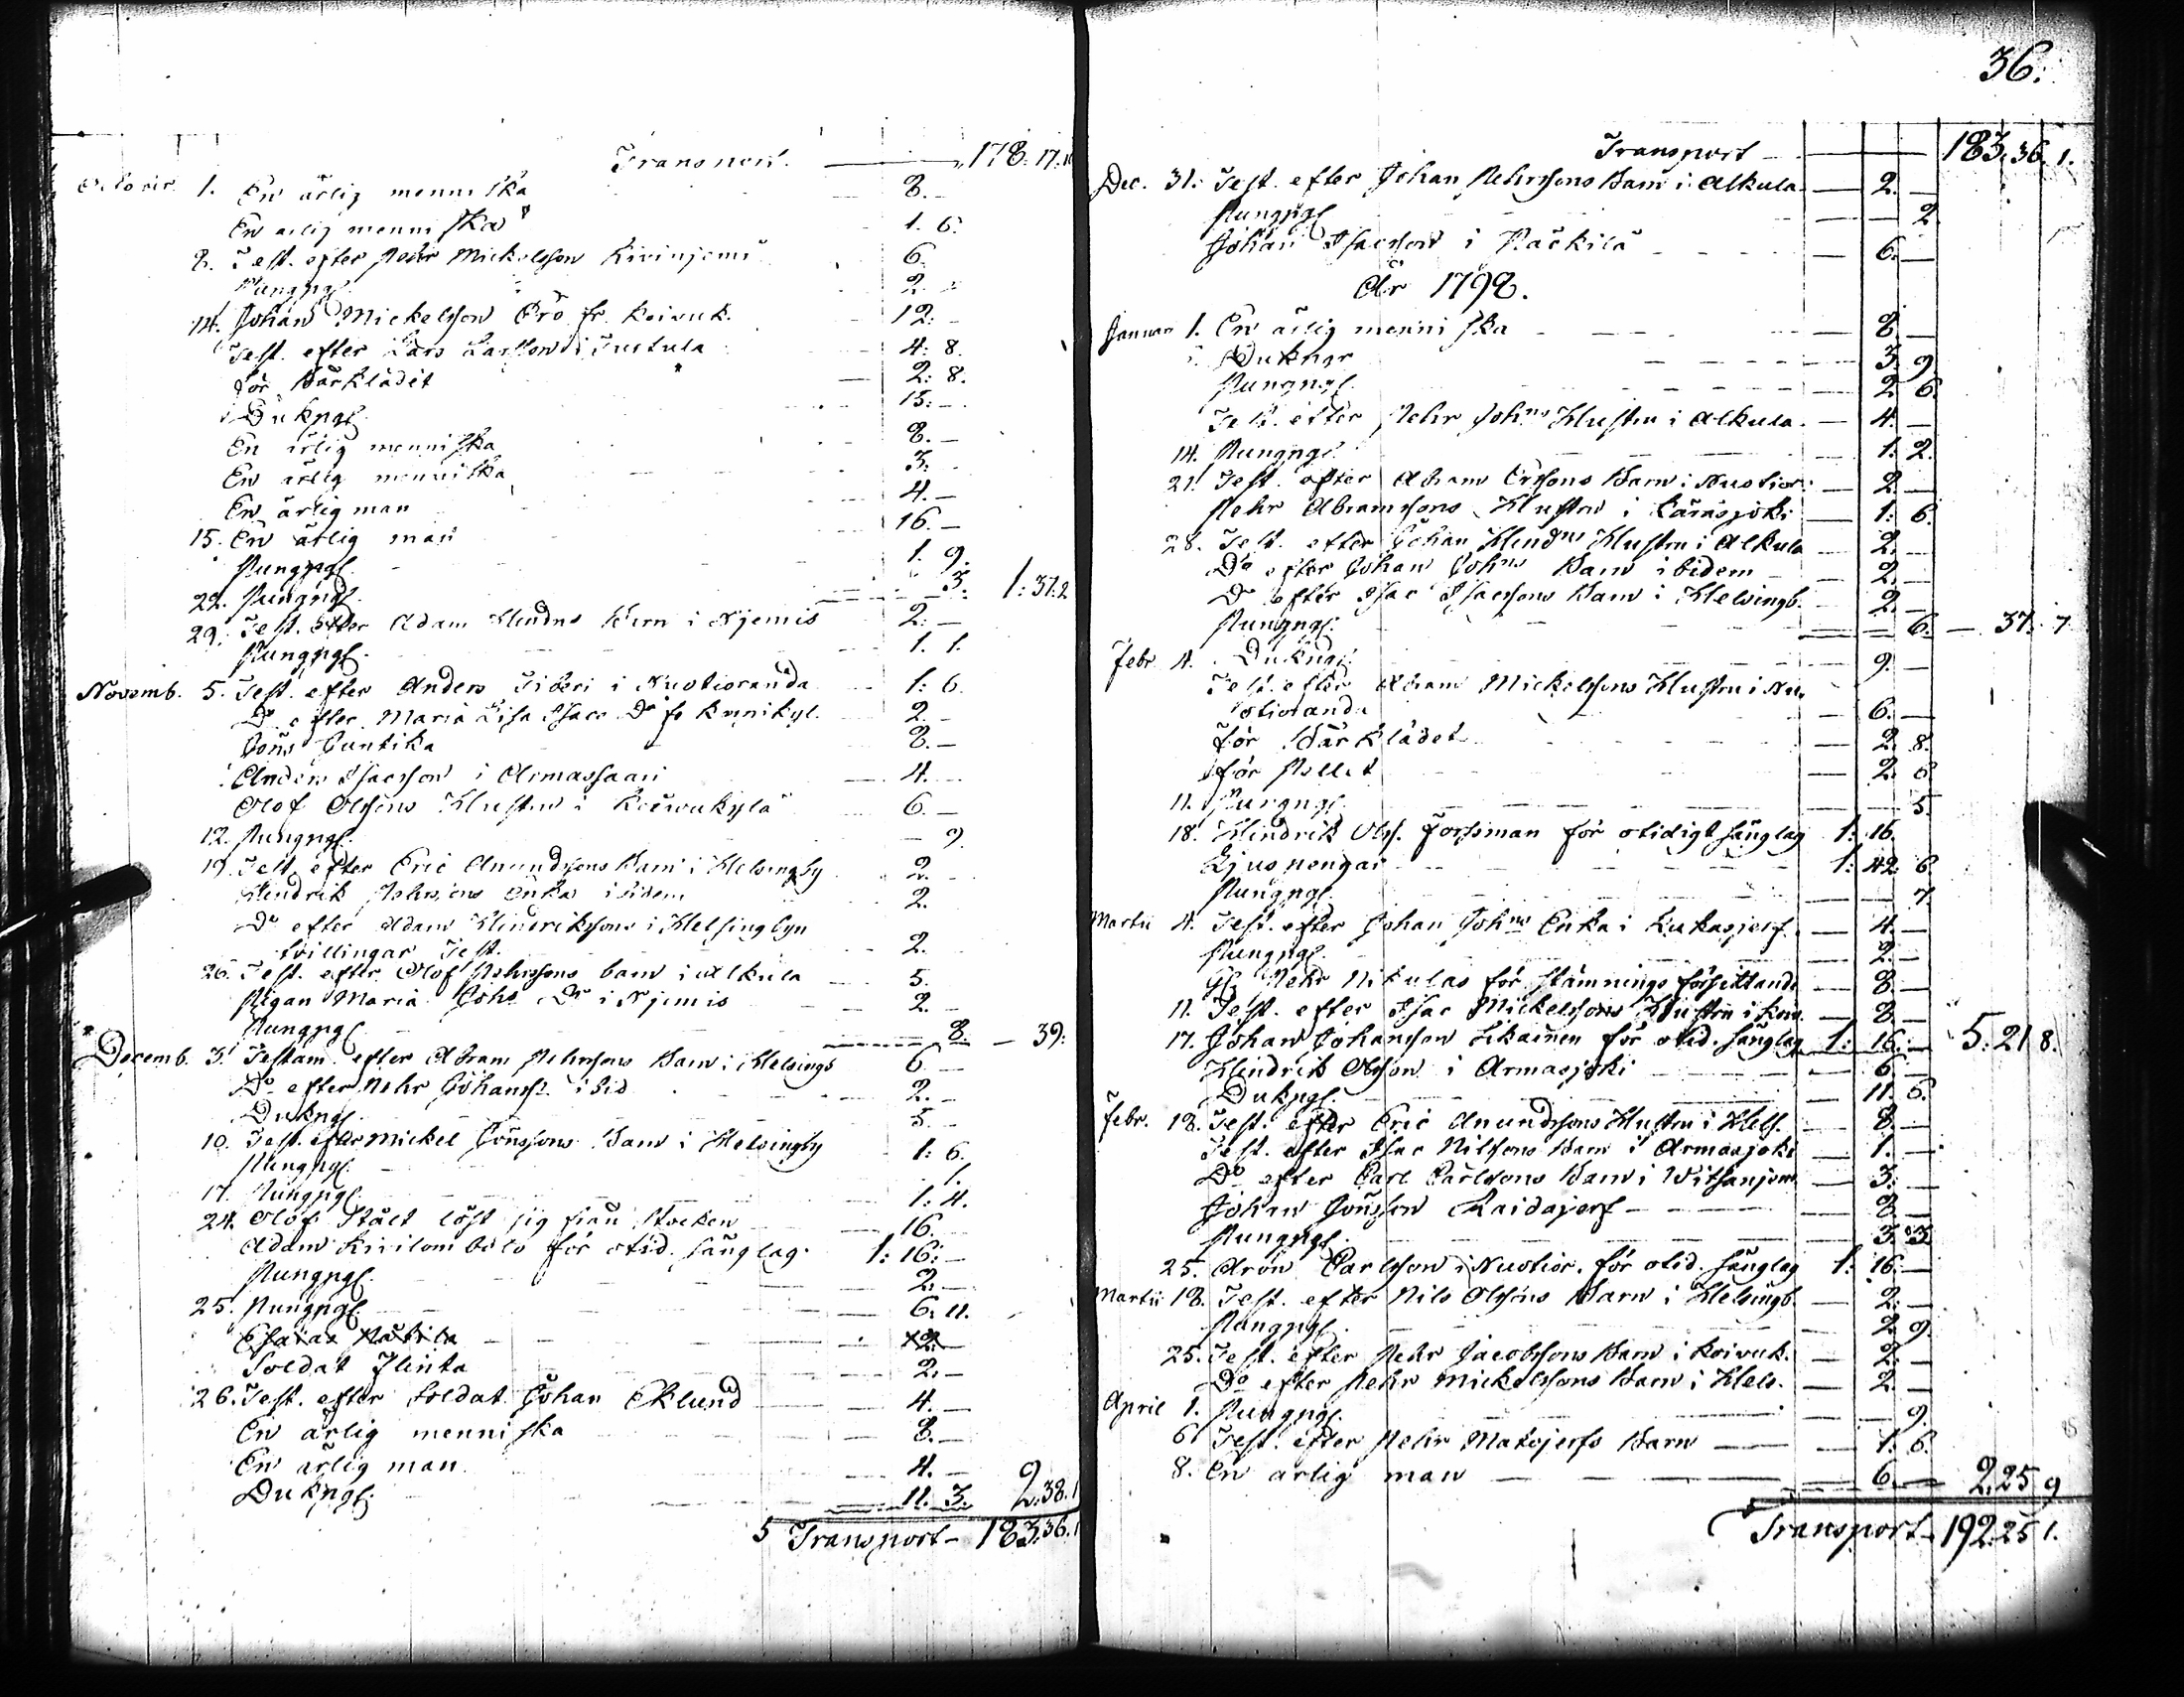 Transport. 178. 17.
October 1. En ärlig menniska 8.
En ärlig menniska 1. 6.
8. Test. efter Pehr Mickelsson Kirinjemi 6.
Pungpgr. 2.
14. Johan Mickelsson Erö fr. Koivuk. 12.
Test. efter Lars Larsson i Turtula 4: 8.
för Bårklädet 2: 8.
Dukpgr. 15.
En ärlig menniska 8.
En ärlig menniska 3.
En ärlig man 4.
15. En ärlig man 16.
Pungpgr. 1. 9.
22. Pungpgr. 3. 1: 37. 2
29. Test. efter Adam Hindrs Barn i Njemis 2.
Pungpgr. 1. 1.
Novemb. 5. Test. efter Anders Fiskeri i Nuotioranda 1: 6.
Do efter Maria Lisa Isacs Dr fr 2.
Jöns Juntika 8.
Anders Isacsson i Armassaari 4.
Olof Olssons Hustru i Koivukylä 6.
12. Pungpgr. 9.
19. Test. efter Eric Anundssons Barn i Helsingby 2.
Hindrik Pehrssons Enka ibidem 2.
Do efter Adam Hindrikssons i Helsingbyn
tvillingar Test. 2.
26. Test. efter Olof Pehrssons barn i Alkula 5.
Pigan Maria Johs Dr i Njemis 2.
Pungpgr. 8. 39:
Decemb. 3. Testam. efter Abram Pehrssons Barn i Helsingb 6.
Do efter Pehr Johanss. ibid 2.
Dukpgr. 5.
10. Test. efter Mickel Jönssons Barn i Helsingby 1: 6.
Pungpgr. 1.
17. Pungpgr. 1: 4.
24. Olof Stålt löst sig från stocken 16.
Adam Kirilombolo för otid. sänglag. 1: 16:
Pungpgr. 2.
25. Pungpgr. 6. 11.
Esaias 2.
Soldat Flinta 2.
26. Test. efter Soldat Johan Eklund 4.
En ärlig menniska 8.
En ärlig man 4.
Dukpgr. 11. 3. 2. 38. 1
5 Transport 183. 36. 1
36.
Transport 183. 36. 1.
Dec. 31. Test. efter Johan Pehrssons Barn i Alkula 2.
Pungpgr 2.
Johan Isacsson i Päckilä 6.
År 1798.
Januari 1. En ärlig menniska 8.
Dukpgr 3. 9.
Pungpgr. 2. 6.
Test. efter Pehr Johns Hustru i Alkula 4.
14. Pungpgr. 1. 2.
21. Test. efter Abram Erssons Barn i Nuotior: 2.
Pehr Abramssons Hustru i Kainsjoki 1: 6.
28. Test. efter Johan Hindrs Hustru i Alkula 2.
Do efter Johan Johns Barn ibidem 2.
Do efter Isac Isacssons Barn i Helsingb. 2.
Pungpgr. 6. 37. 7
Febr. 4. Dukpgr. 9.
Test. efter Abram Mickelssons Hustru i Nu-
otioranda 6.
för Bårklädet 2. 8.
för Pellet 2. 6.
11. Pungpgr. 5.
18. Hindrik Olss. Forssman för otidigt sänglag 1: 16.
Ljuspengar 1: 42. 6.
Pungpgr. 7
Martii 4. Test. efter Johan Johns Enka i Kukasjerf. 4.
Pungpgr. 2.
Gl. Pehr Nikulas för stämnings försittande 8.
11. Test. efter Isac Mickelssons Hustru i Koiv. 8.
17. Johan Johansson Likainen för otid. sänglag 1: 16. 5. 21 8.
Hindrik Olsson i Armasjoki 6.
Dukpgr. 11. 6.
Febr. 18. Test. efter Eric Anundssons Hustru i Hels. 8.
Test. efter Isac Nilssons Barn i Armasjoki 1.
Do efter Carl Carlssons Barn i Witsanjem. 3.
Johan Jönsson Raidajerf 8.
Pungpgr. 3. 3.
25. Aron Carlsson i Nuotior. för otid. sänglag 1: 16.
Martii 18. Test. efter Nils Olssons Barn i Helsingb. 2.
Pungpgr. 2. 9.
25. Test. efter Pehr Jacobssons Barn i Koivuk. 2.
Do efter Pehr Mickelssons Barn i Hels. 2.
April 1. Pungpgr. 9.
6. Test. efter Pehr Matojerfs Barn 1. 6.
8. En ärlig man 6. 2. 25 9
Transport 192. 25 1.